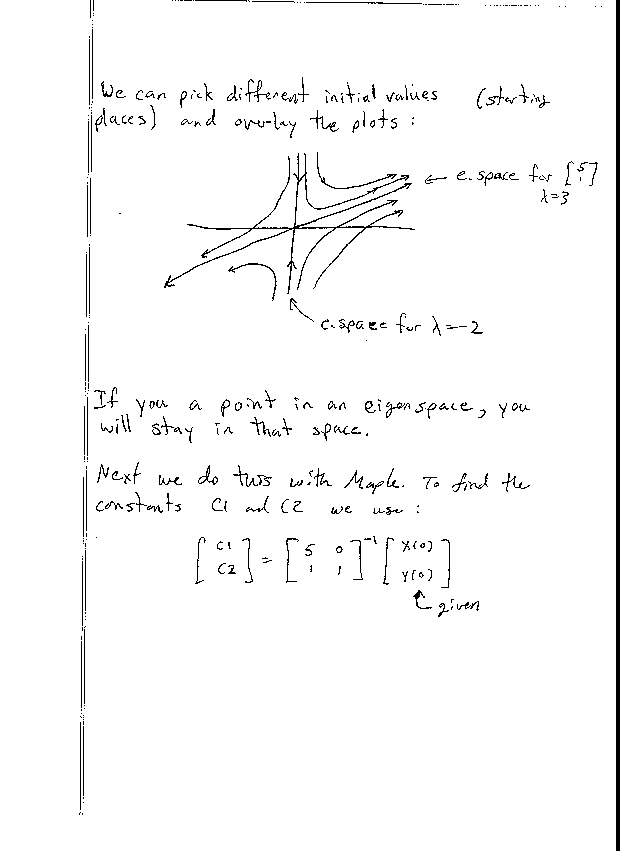 We can pick different initial values (starting
places) and overlay the plots :
← e. space for [5 1]
λ=3
e. space for λ=-2
If you a point in an eigenspace, you
will stay in that space.
Next we do this with Maple. To find the
constants C1 and C2 we use :
[C1 C2] = [5 0 1 1]⁻¹ [X(0) Y(0)]
given